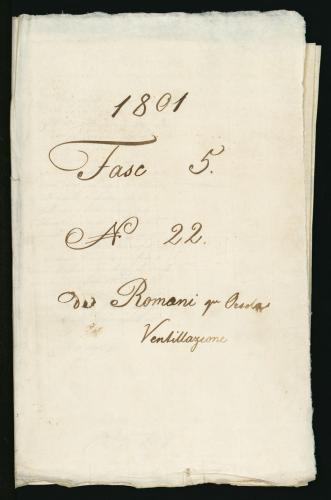 1801
Fasc 5.
N 22.
de Romani qm Orsola
Ventillazione